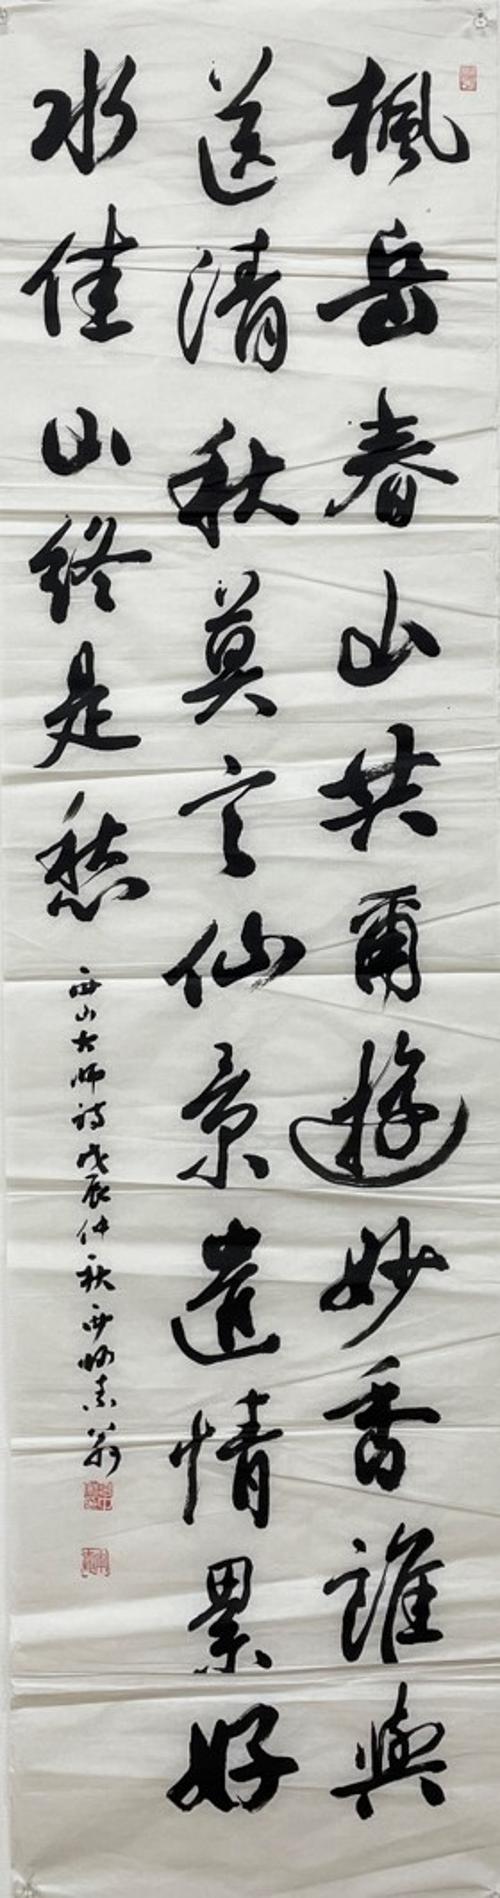 楓岳春山共爾遊妙香誰與
送清秋莫言仙景遣情累好
水佳山終是愁
西山大師詩戊辰仲秋